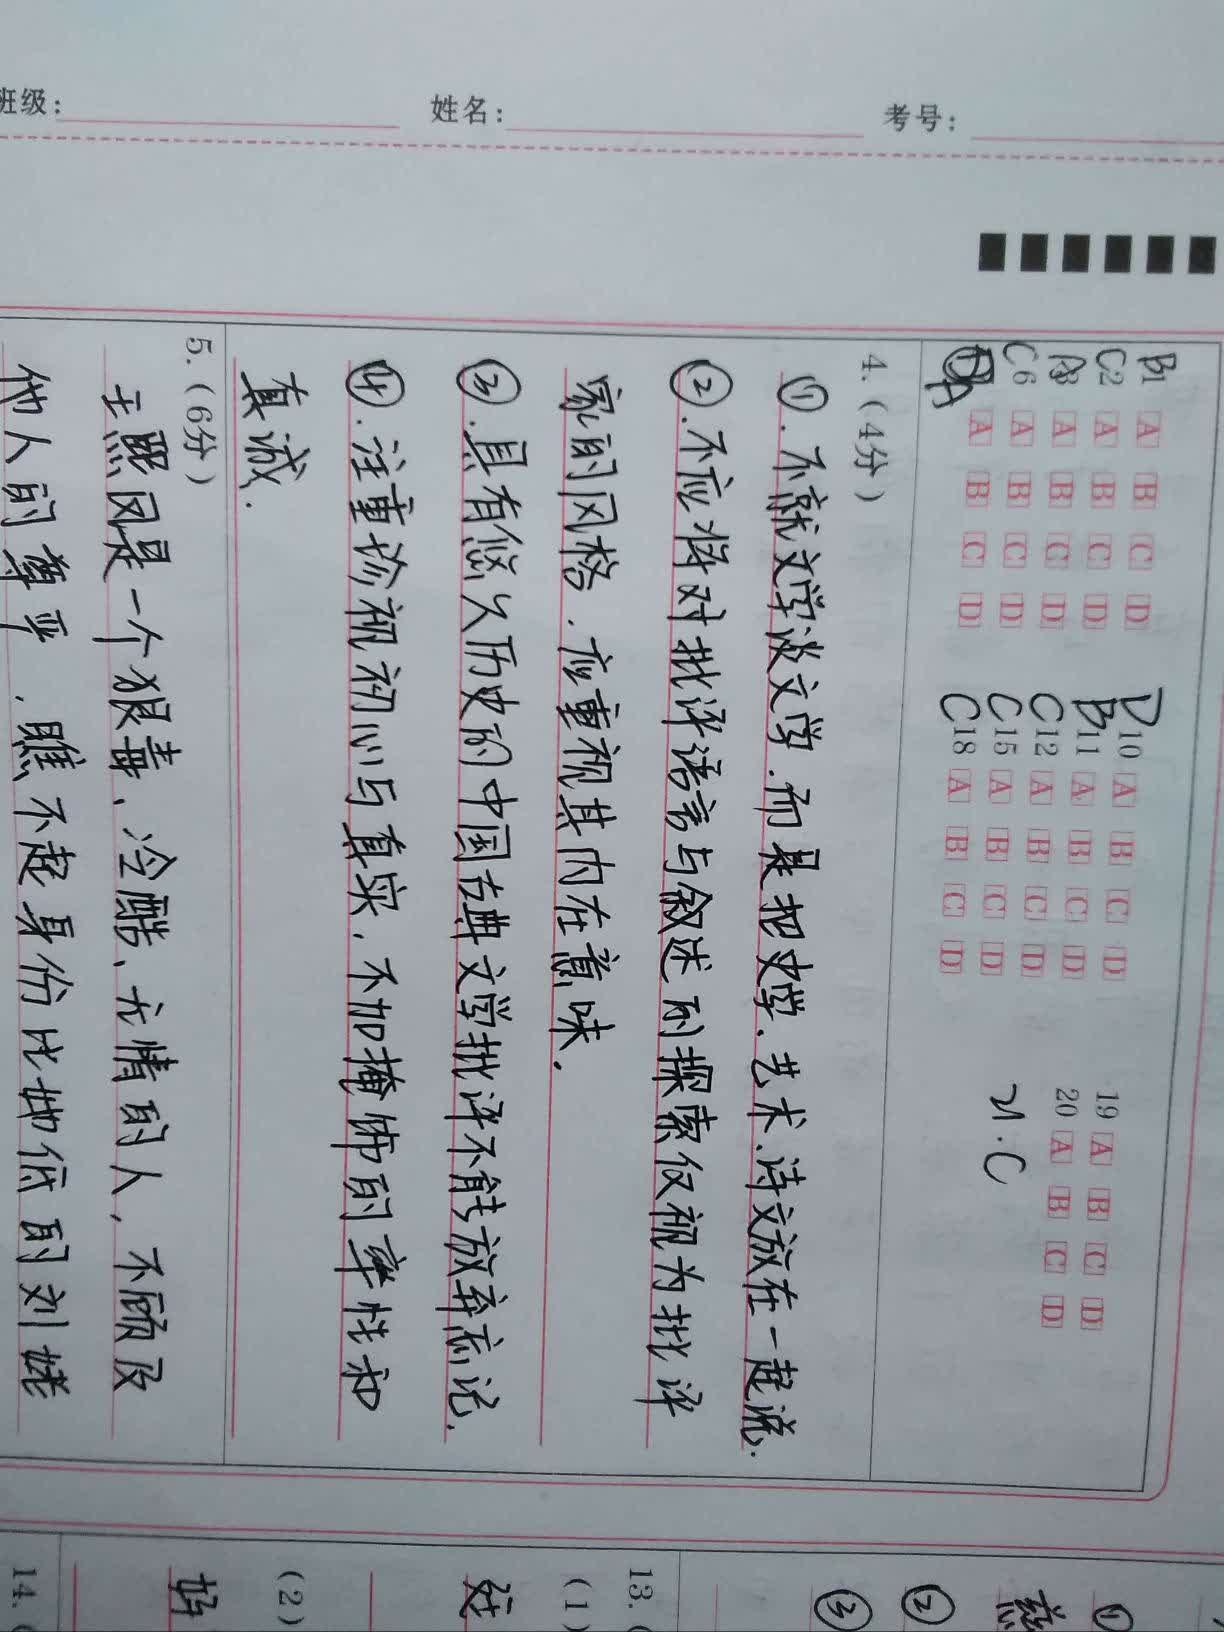 班级：
姓名：
考号：
B 1 A B C D
C 2 A B C D
3 A B C D
C 6 A B C D
A B C D
D 10 A B C D
B 11 A B C D
C 12 A B C D
C 15 A B C D
C 18 A B C D
19 A B C D
20 A B C D
21.C
4.（4分）
①.不就文学谈文学.而是把史学、艺术、诗文放在一起说.
②.不应将对批评语言与叙述的探索仅视为批评
家的风格.应重视其内在意味.
③.具有悠久历史的中国古典文学批评不能放弃忘记.
④.注重珍视初心与真实.不加掩饰的率性和
真诚.
5.（6分）
王熙凤是一个狠毒、冷酷、无情的人，不顾及
他人的尊严、瞧不起身份比她低的刘姥
①
②
③
13.（
（1）
（2）
14.（